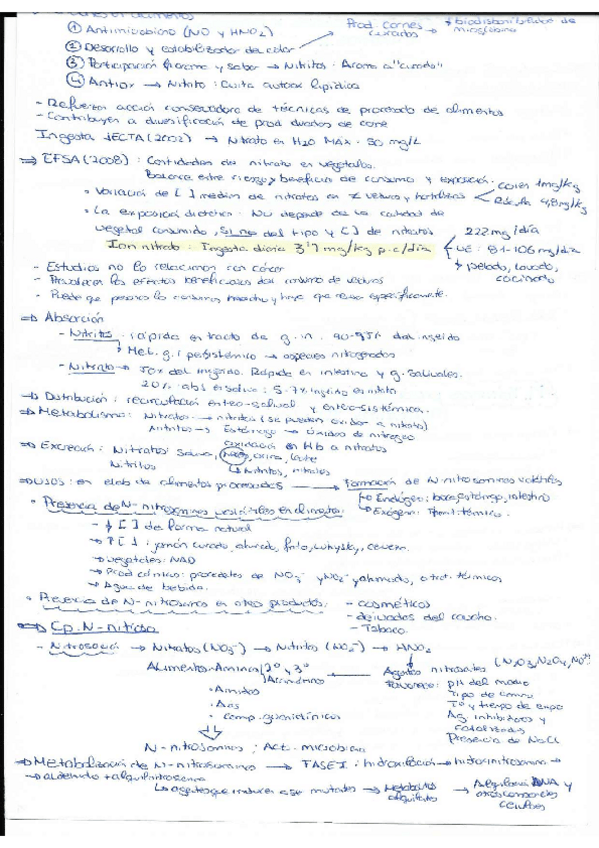 ① Antimicrobiano (NO y HNO2)
Prod. carnes curados
↑ biodisponibilidad de mioglobina
② Desarrollo y estabilizador de color
③ Participación aroma y sabor → Nitritos: Aroma a "curado"
④ Antiox → Nitrito: Evita autoox lipídica
- Refuerzan acción conservadora de técnicas de procesado de alimentos
- Contribuyen a diversificación de prod curados de carne
Ingesta JECFA (2002) → Nitrato en H2O MAX. 50 mg/L
⇒ EFSA (2008): Contidades de nitrato en vegetales.
Balance entre riesgo y beneficio de consumo y exposición.
• Variación de [ ] media de nitratos en verduras y hortalizas
1 mg/kg
4,8 mg/kg
• La exposición dietética: No depende de la cantidad de
vegetal consumido, si no del tipo y [ ] de nitratos
222 mg/día
Ion nitrato: Ingesta diaria 3'7 mg/kg p.c/día
UE: 81-106 mg/día
pelado, lavado, cocinado
- Estudios no lo relacionan con cáncer
- Prevalecen los efectos beneficiosos del consumo de verduras
- Puede que personas lo consuman mucho y haya que revisar específicamente.
⇒ Absorción
- Nitritos: rápida en tracto de g.in. 90-95% del ingerido
Met. g.i presistémico → especies nitrogenadas
- Nitrato → del ingerido. Rápida en intestino y g. salivales.
20% abs en saliva: 5-7% ingerido es nitrito
⇒ Distribución: recirculación entero-salival y entero-sistémica.
⇒ Metabolismo: Nitratos → nitritos (se pueden oxidar a nitrato)
Nitritos → Estómago → óxidos de nitrógeno
oxidación en Hb a nitratos
⇒ Excreción: Nitratos: saliva, orina, leche
Nitritos
nitritos, nitratos
⇒ Usos: en elab de alimentos procesados → Formación de N-nitrosaminas volátiles
Endógeno: boca, estómago, intestino
Exógeno: Tªont. térmico.
• Presencia de N-nitrosaminas volátiles en alimentos:
- ↓ [ ] de forma natural
→ ↑ [ ]: jamón curado, ahumado, frito, whisky, cerveza.
→ Vegetales: NAD
→ Prod cárnico: procedentes de NO3⁻ y NO2⁻ y ahumado, o trat. térmicos
→ Agua de bebida.
• Presencia de N-nitrosaminas en otros productos:
- cosméticos
- derivados del caucho.
- Tabaco.
⇒ Cp. N-nitroso
- Nitrosación → Nitratos (NO3⁻) → Nitritos (NO2⁻) → HNO2
Alimentos: Aminas 2º y 3º
Agentes nitrosantes (N2O3, N2O4, NO⁺)
Favorece: pH del medio
Tipo de amina
Tº y tiempo de expo
Ag. inhibidores y catalizadores
Presencia de NaCl
• Amidas
• Aas
• Comp. guanidínicos
N-nitrosaminas: Act. microbiana
⇒ Metabolización de N-nitrosaminas → FASE I: hidroxilación → hidroxinitrosamina →
→ aldehído + alquilnitrosamina
↳ agentes que inducen a ser mutados → Metabolitos alquilantes → Alquilación DNA y otros componentes celulares